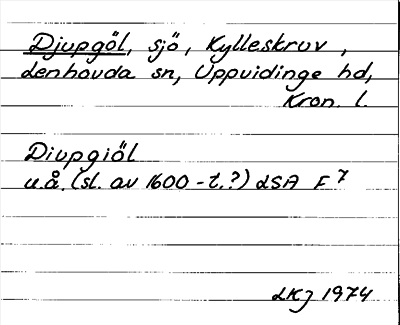 Djupgöl, sjö, Kylleskruv,
Lenhovda sn, Uppvidinge hd,
Kron. l.
Diupgiöl
u.å. (sl. av 1600-t.?) LSA F 7
LKJ 1974